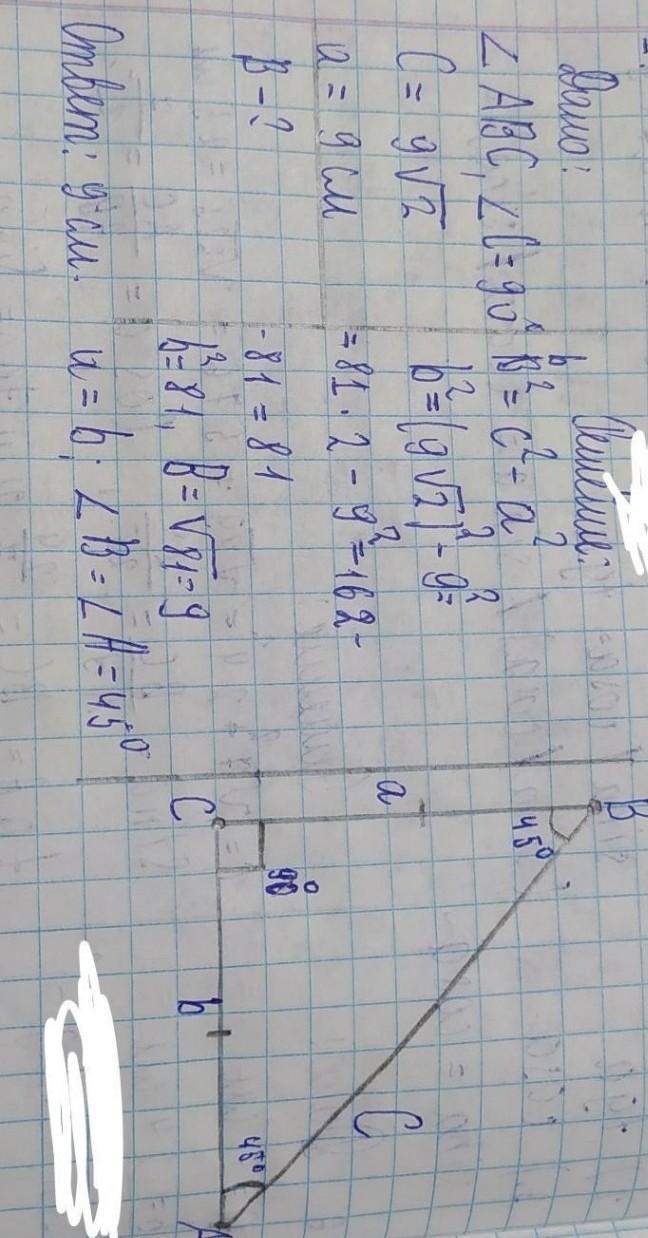 Дано:
∠ ABC, ∠C = 90°
C = 9√2
a = 9 см
B - ?
Ответ: 9 см.
Решение:
b
B² = c² - a²
b² = (9√2)² - 9² =
= 81 · 2 - 9² = 162 -
- 81 = 81
b² = 81, B = √81 = 9
a = b; ∠B = ∠A = 45°
B
45°
a
C
90°
b
C
45°
A